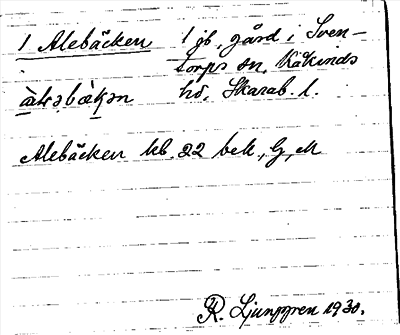 1 Alebäcken 1 jb. gård i Sven-
torps sn, Kåkinds
hd, Skarab. l.
Alebäcken kb. 22 bek., G, M
R. Ljunggren 1930.